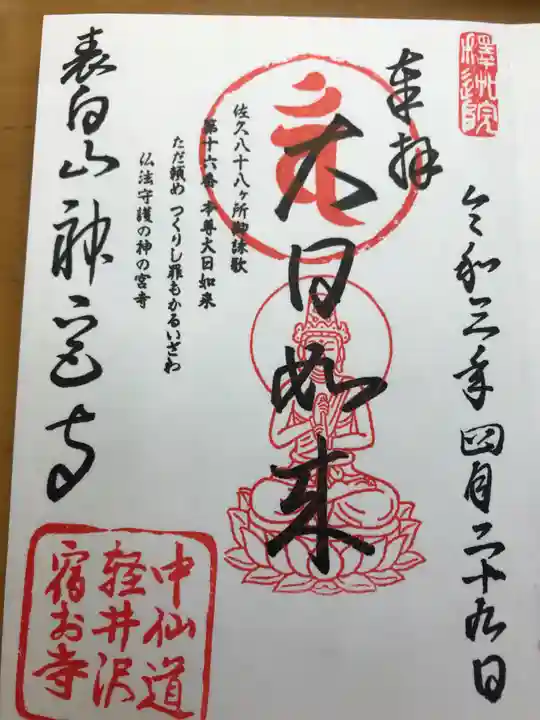 釋迦院
令和三年四月二十九日
奉拝
大日如来
佐久八十八ヶ所御詠歌
第十六番 本尊大日如来
ただ頼め つくりし罪もかるいざわ
仏法守護の神の宮寺
表白山神宮寺
中仙道
軽井沢
宿お寺